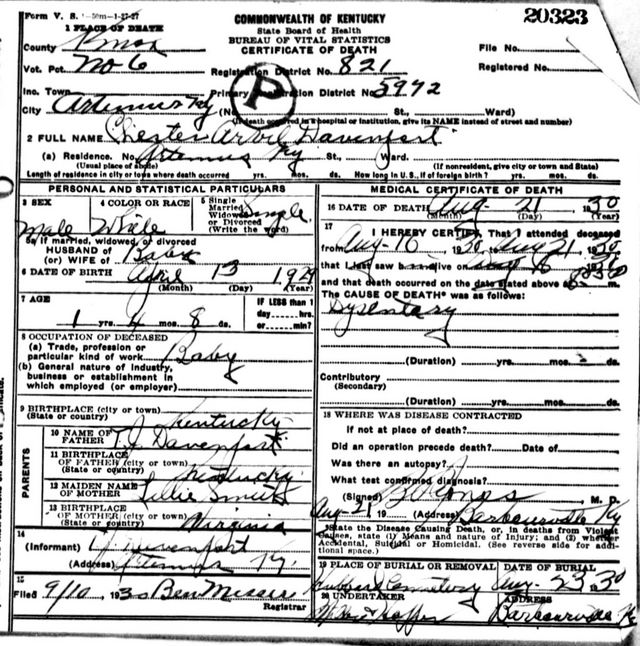 Form V. S. 1-50m-1-27-27
COMMONWEALTH OF KENTUCKY
State Board of Health
BUREAU OF VITAL STATISTICS
CERTIFICATE OF DEATH
20323
1 PLACE OF DEATH
County Knox
File No.
Vot. Pct. No 6
Registration District No. 821
Registered No.
Inc. Town
Primary Registration District No. 5942
City Artemus Ky (No. St., Ward)
P
(If death occurred in a hospital or institution, give its NAME instead of street and number)
2 FULL NAME Chester Arvil Davenport
(a) Residence. No. Artemus Ky St., Ward.
(Usual place of abode) (If nonresident, give city or town and State)
Length of residence in city or town where death occurred yrs. mos. ds. How long in U. S., if of foreign birth? yrs. mos. ds.
PERSONAL AND STATISTICAL PARTICULARS
3 SEX
Male
4 COLOR OR RACE
White
5 Single
Married
Widowed
or Divorced
(Write the word)
Single
5a If married, widowed, or divorced
HUSBAND of
(or) WIFE of Baby
6 DATE OF BIRTH April 13 1929
(Month) (Day) (Year)
7 AGE
1 yrs. 4 mos. 8 ds.
IF LESS than 1
day hrs.
or min.?
8 OCCUPATION OF DECEASED
(a) Trade, profession or
particular kind of work Baby
(b) General nature of industry,
business or establishment in
which employed (or employer)
9 BIRTHPLACE (city or town)
(State or country) Kentucky
PARENTS
10 NAME OF
FATHER T J Davenport
11 BIRTHPLACE
OF FATHER (city or town)
(State or country) Kentucky
12 MAIDEN NAME
OF MOTHER Lillie Smith
13 BIRTHPLACE
OF MOTHER (city or town)
(State or country) Virginia
14
(Informant) T J Davenport
(Address) Artemus Ky.
15
Filed 9/10 1930 Ben
Registrar
MEDICAL CERTIFICATE OF DEATH
16 DATE OF DEATH Aug - 21 1930
(Month) (Day) (Year)
17 I HEREBY CERTIFY, That I attended deceased
from Aug-16 1930 to Aug 21, 1930
that I last saw h alive on Aug 18 1930
and that death occurred on the date stated above at m.
The CAUSE OF DEATH* was as follows:
Dysentary
(Duration) yrs. mos. ds.
Contributory
(Secondary)
(Duration) yrs. mos. ds.
18 WHERE WAS DISEASE CONTRACTED
If not at place of death?
Did an operation precede death? Date of
Was there an autopsy?
What test confirmed diagnosis?
(Signed) Jones M. D.
Aug 21 19 (Address) Barbourville Ky
*State the Disease Causing Death, or, in deaths from Violent
Causes, state (1) Means and nature of Injury; and (2) whether
Accidental, Suicidal or Homicidal. (See reverse side for addi-
tional space.)
19 PLACE OF BURIAL OR REMOVAL
Hubbard Cemetery
DATE OF BURIAL
Aug- 23 1930
20 UNDERTAKER
ADDRESS
Barbourville Ky